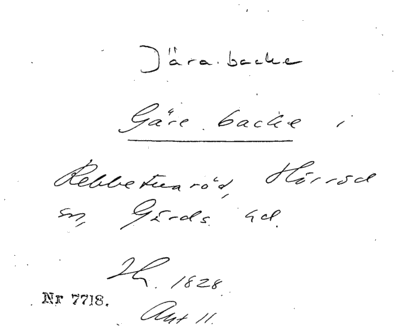 Jära backe
Gäre backe i
Rebbetuaröd, Hörröd
sn, Gärds hd.
1828.
Nr 7718.
Ant 11.